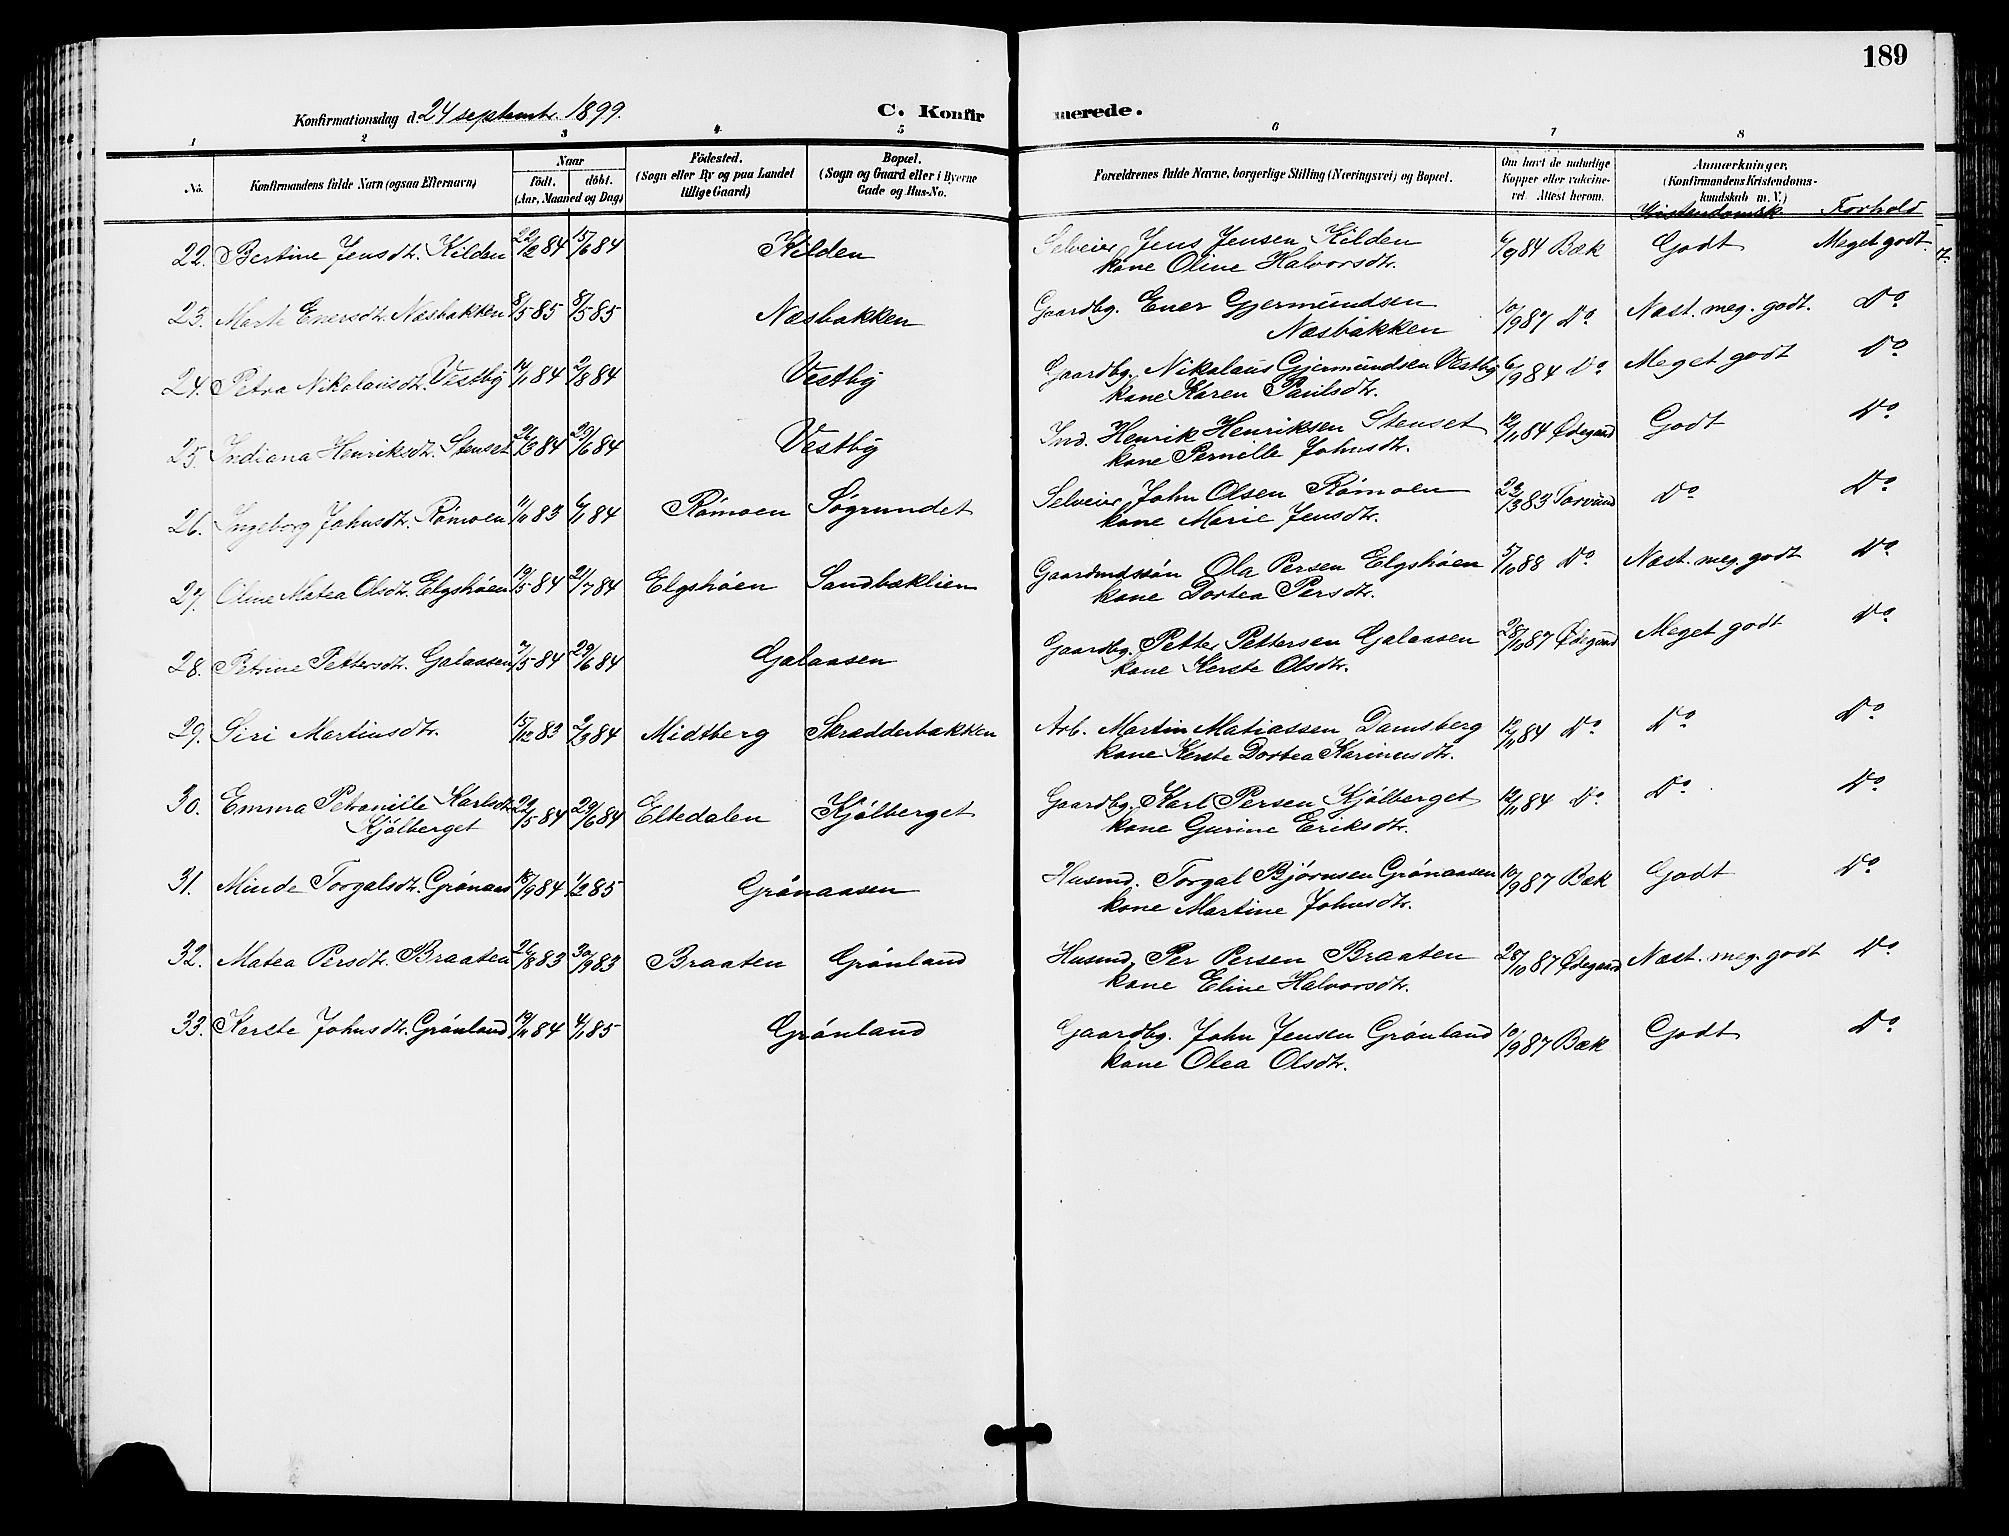 189
Konfirmationsdag d. 24 septembr. 1899. C. Konfirmerede.
1 2 3 4 5 6 7 8
No. Konfirmandens fulde Navn (ogsaa Efternavn) Naar født. døbt. (Aar, Maaned og Dag) Födested. (Sogn eller By og paa Landet tillige Gaard) Bopæl. (Sogn og Gaard eller i Byerne Gade og Hus-No. Forældrenes fulde Navne, borgerlige Stilling (Næringsvei) og Bopæl. Om havt de naturlige Kopper eller vakcineret. Attest herom. Anmærkninger, (Konfirmandens Kristendomskundskab m. V.) Kristendomsk. Forhold
22. Bertine Jensdtr. Kilden 22/2 84 15/6 84 Kilden Selveier Jens Jensen Kilden 6/9 84 Bæk Godt Meget godt.
kone Oline Halvorsdtr.
23. Marte Enersdtr. Næsbakken 8/5 85 8/5 85 Næsbakken Gaardbg. Ener Gjermundsen 10/9 87 Do Næst. meg. godt. Do
Næsbakken
24. Petra Nikolausdtr. Vestby 14/1 84 2/8 84 Vestby Gaardbg. Nikolaus Gjermundsen Vestby 6/9 84 Do Meget godt Do
kone Karen Paulsdtr.
25. Indiana Henriksdtr. Stenset 26/3 84 29/6 84 Vestby Ind. Henrik Henriksen Stenset 12/11 84 Ødegaard Godt Do
kone Pernille Johnsdtr.
26. Ingeborg Johnsdtr. Rømoen 11/11 83 6/1 84 Rømoen Søgrundet Selveier John Olsen Rømoen 22/3 83 Torvund Do Do
kone Marie Jensdtr.
27. Oline Matea Olsdtr. Elgshøen 19/5 84 21/7 84 Elgshøen Sandbæklien Gaardmdssøn Ola Persen Elgshøen 5/10 88 Do Næst. meg. godt Do
kone Dortea Persdtr.
28. Petrine Pettersdtr. Galaasen 7/5 84 29/6 84 Galaasen Gaardbg. Petter Pettersen Galaasen 28/10 87 Ødegaard Meget godt Do
kone Kerste Olsdtr.
29. Siri Martinsdtr. 15/12 83 2/3 84 Midtberg Skrædderbakken Arb. Martin Matiassen Damsberg 12/11 84 Do Do Do
kone Kerste Dortea Karinusdtr.
30. Emma Petronille Karlsdtr. 22/5 84 29/6 84 Eltedalen Kjølberget Gaardbg. Karl Persen Kjølberget 12/11 84 Do Do Do
Kjølberget kone Gurine Eriksdtr.
31. Minde Torgalsdtr. Grønaas 18/9 84 1/2 85 Grønaasen Husmd. Torgal Bjørnsen Grønaasen 10/9 87 Bæk Godt Do
kone Martine Johnsdtr.
32. Matea Persdtr. Braaten 26/8 83 30/9 83 Braaten Grønland Husmd. Per Persen Braaten 28/10 87 Ødegaard Næst. meg. godt Do
kone Eline Halvorsdtr.
33. Kerste Johnsdtr. Grønland 19/11 84 4/1 85 Grønland Gaardbg. John Jensen Grønland 10/9 87 Bæk Godt Do
kone Olea Olsdtr.